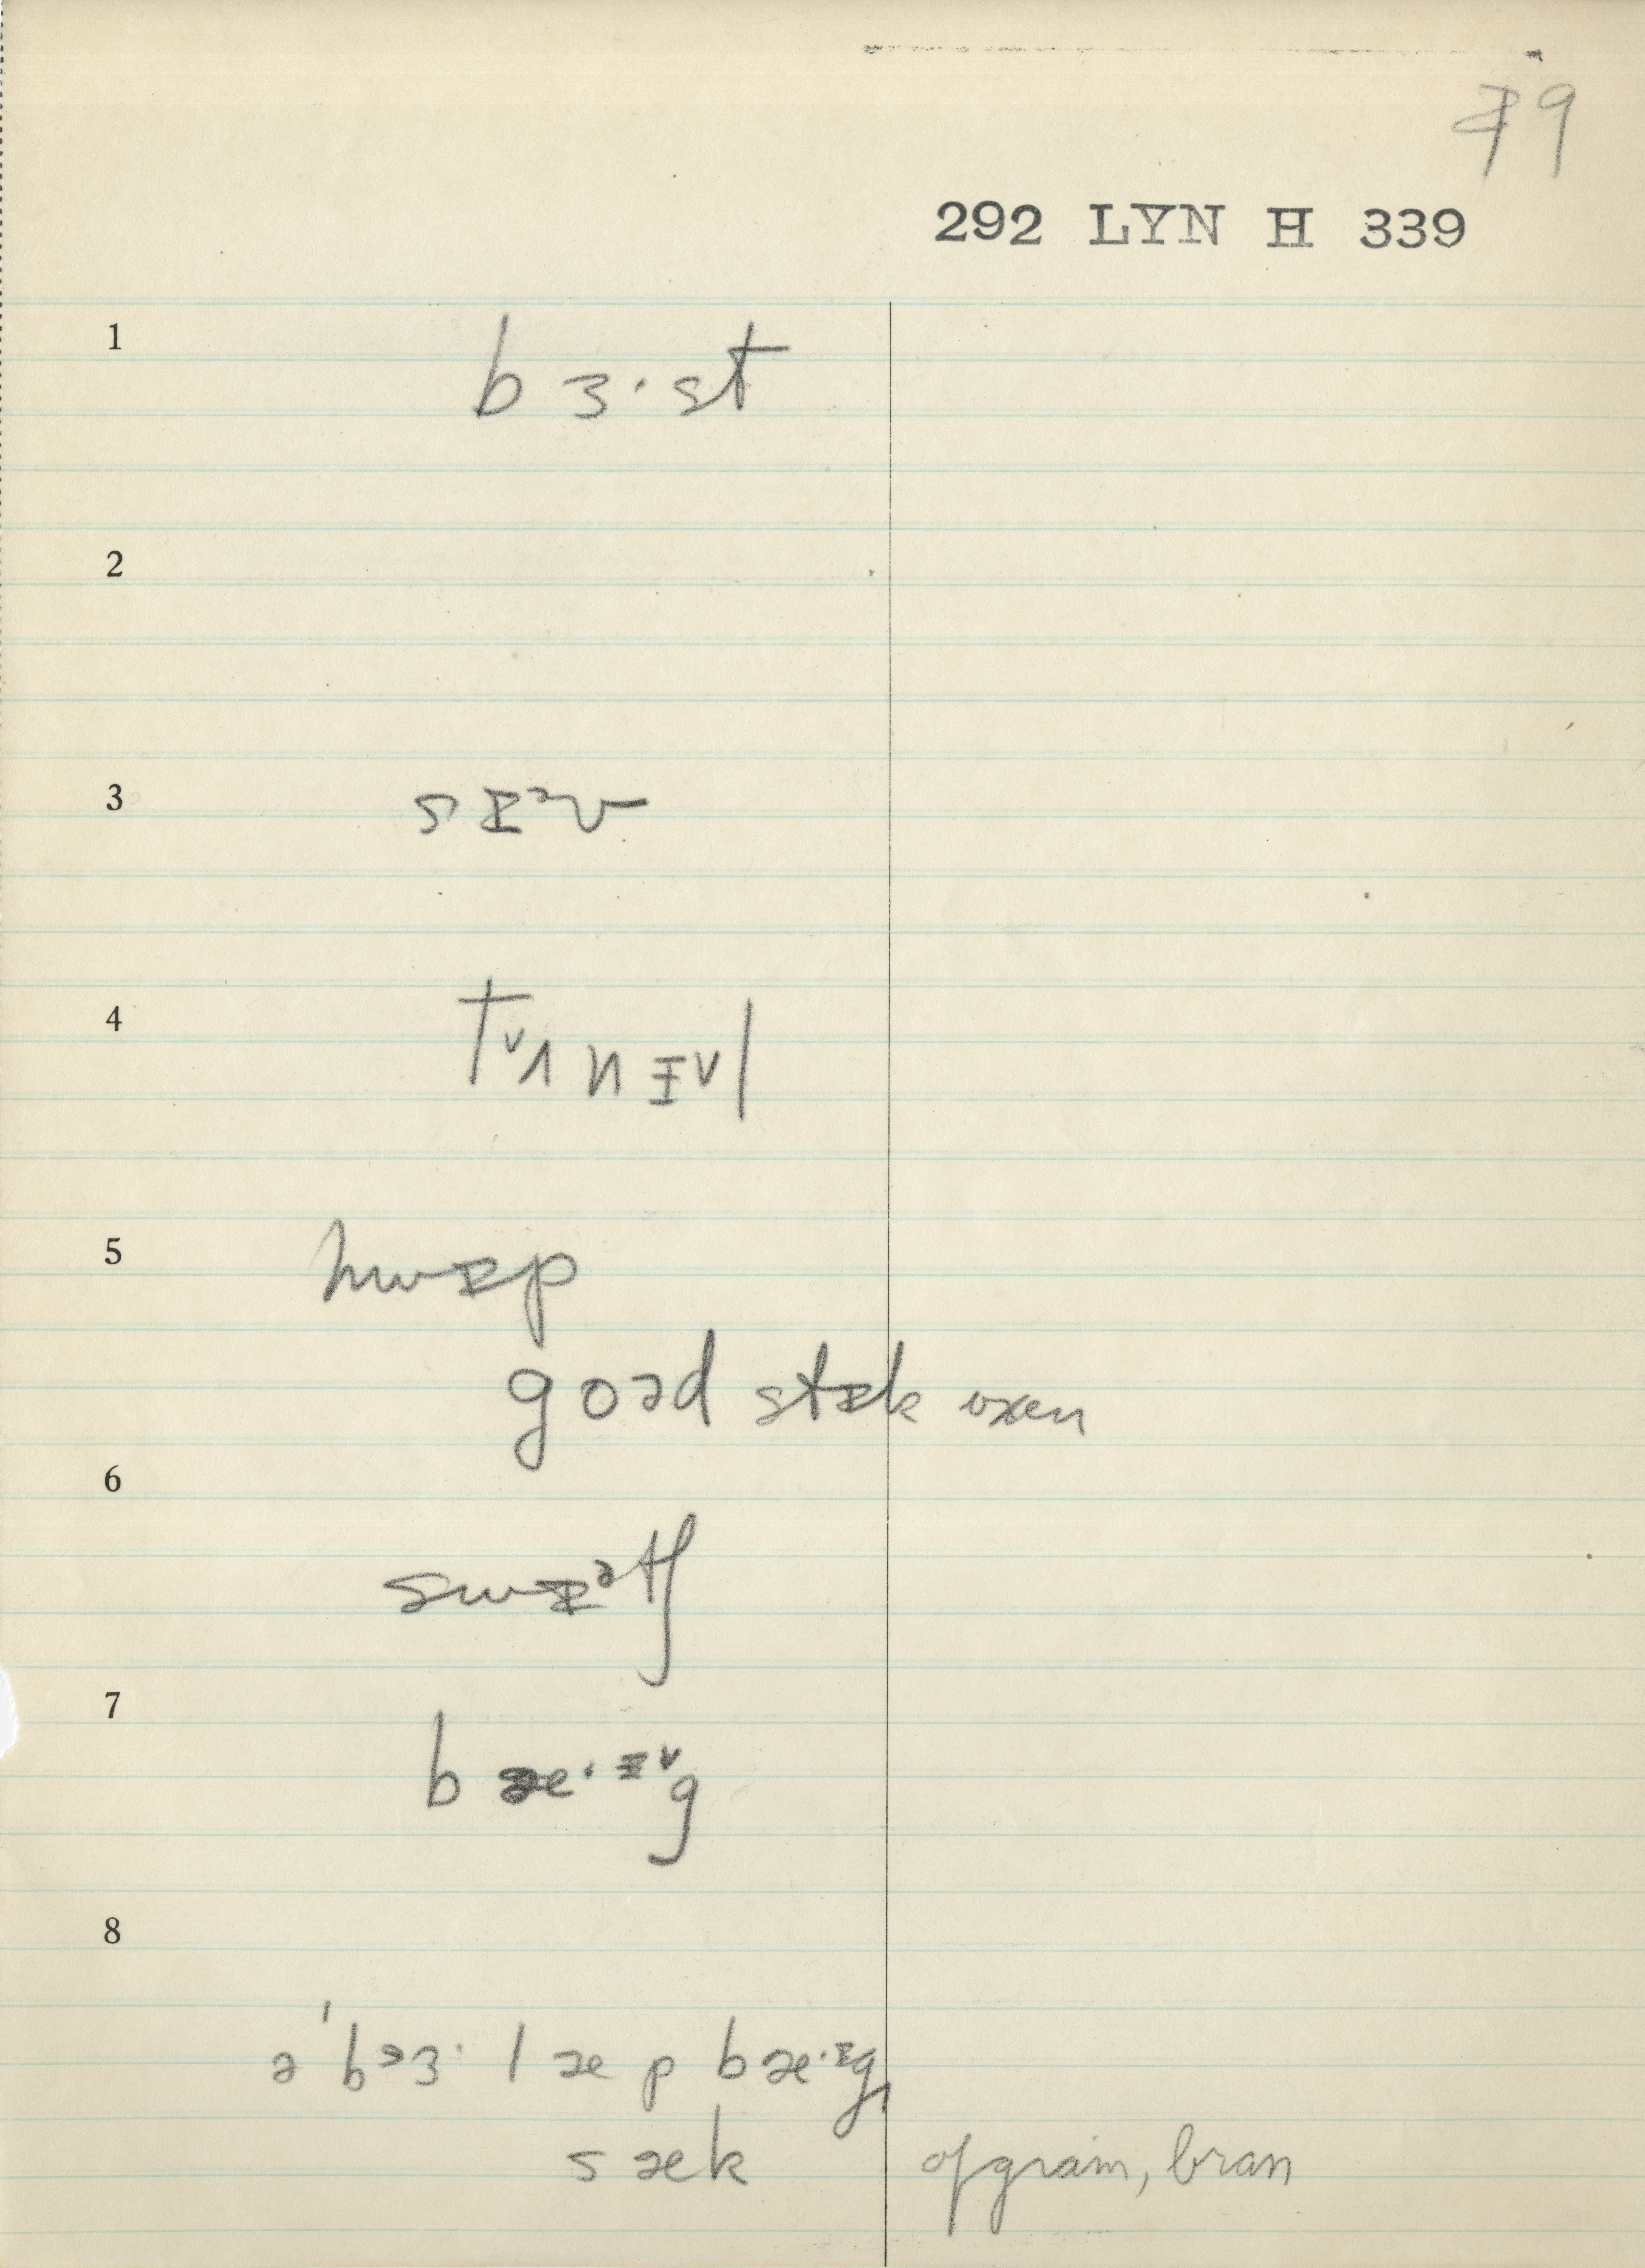 79
292 LYN H 339
1
b ɜ· st
2
3
s ɪᵊv
4
tᵛʌ n ɪᵛl
5
hwɪp
goəd stɪk oxen
6
swɪᵊtʃ
7
b æ· ɪᵛg
8
ə ˈbᵊɜ· l æ p b æ·ɪg,
s æk of grain, bran